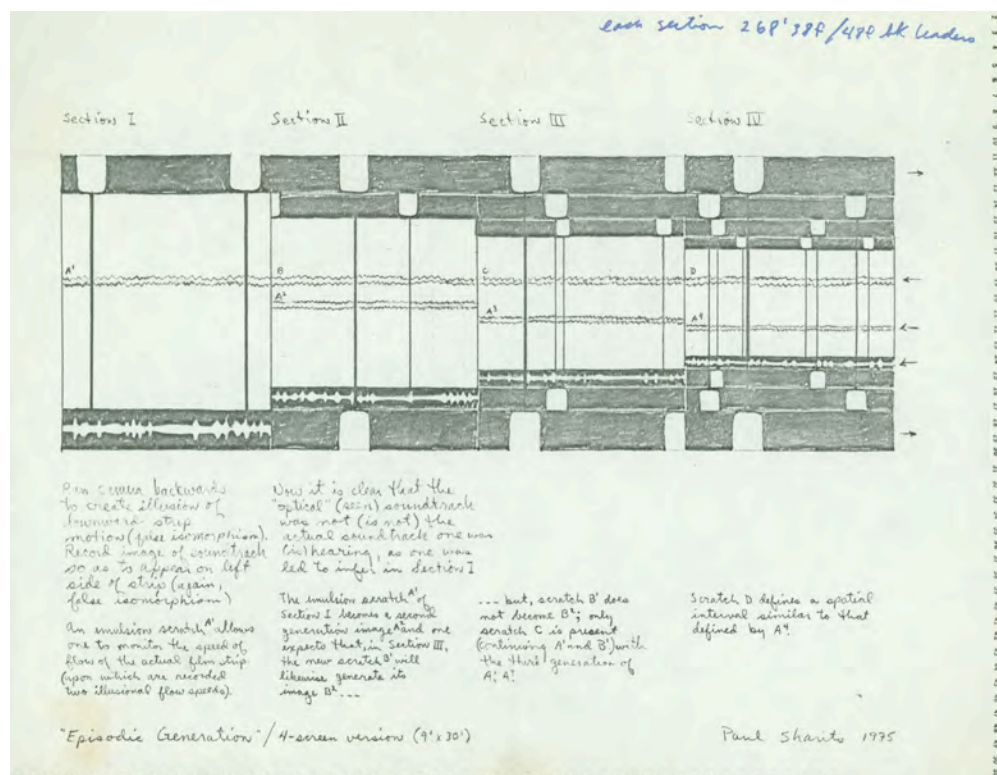 each section 268' 38f/48f bk leaders
Section I Section II Section III Section IV
A' B C D
A² A³ A⁴
Run camera backwards
to create illusion of
downward strip
motion (false isomorphism).
Record image of soundtrack
so as to appear on left
side of strip (again,
false isomorphism)
An emulsion scratch A' allows
one to monitor the speed of
flow of the actual film strip
(upon which are recorded
two illusional flow speeds).
Now it is clear that the
"optical" (seen) soundtrack
was not (is not) the
actual soundtrack one was
(is) hearing, as one was
led to infer in Section I
The emulsion scratch A' of
Section I becomes a second
generation image A² and one
expects that, in Section III,
the new scratch B' will
likewise generate its
image B² ...
... but, scratch B' does
not become B²; only
scratch C is present
(continuing A' and B') with
the third generation of
Scratch D defines a spatial
interval similar to that
defined by A⁴.
"Episodic Generation" / 4-screen version (9' x 30')
Paul Sharits 1975